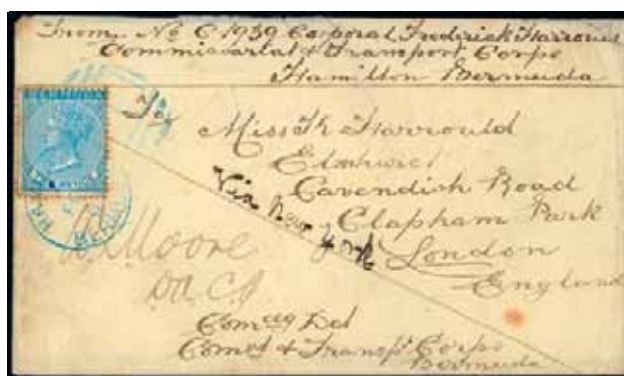 From No C/1939 Corporal Frederick
Commissariat & Transport Corps
Hamilton Bermuda
To
Miss
Elmhurst
Cavendish Road
Via New York
Clapham Park
London
England
Moore
Comg Dd
Comst & Transpt Corps
Bermuda